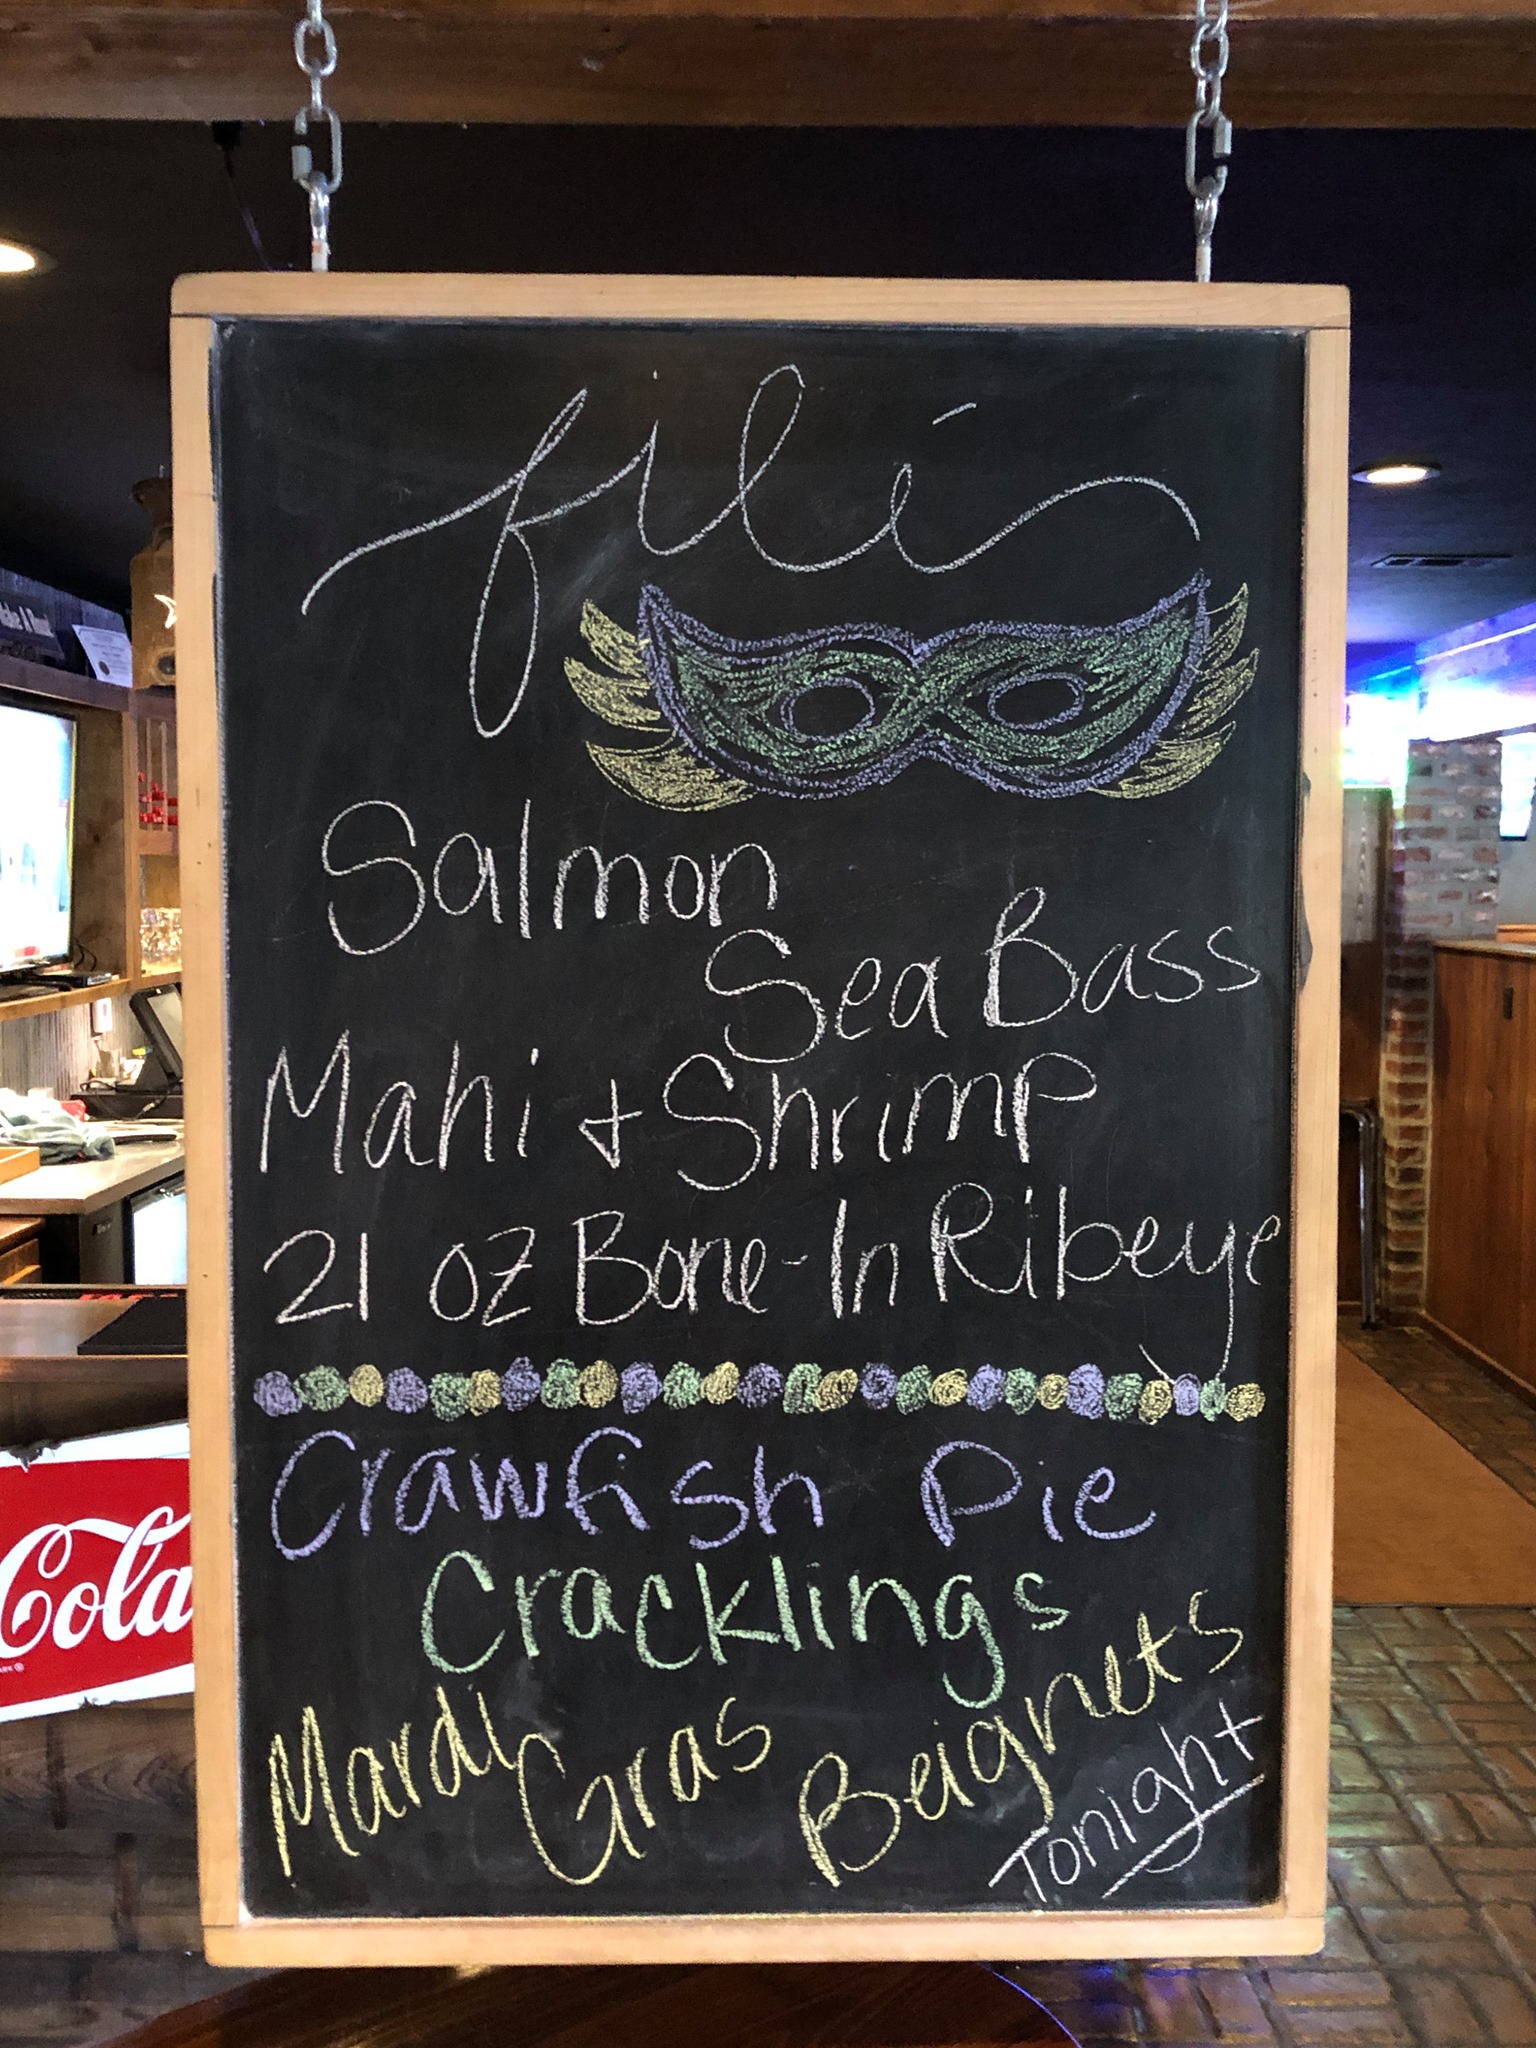 fili
Salmon
Sea Bass
Mahi + Shrimp
21 oz Bone-In Ribeye
Crawfish Pie
Cracklings
Mardi Gras Beignets
Tonight
Cola